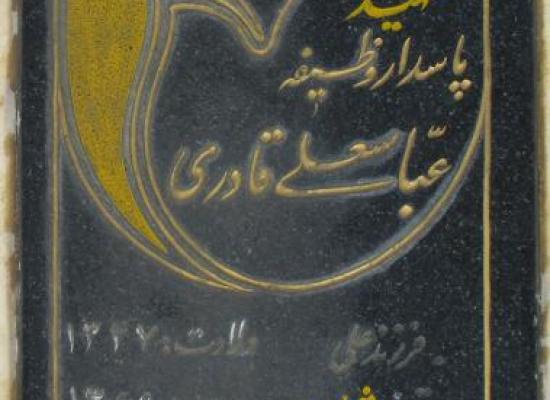 پاسدار وظیفه
عباسعلی قادری
فرزند علی ولادت: ۱۳۴۷